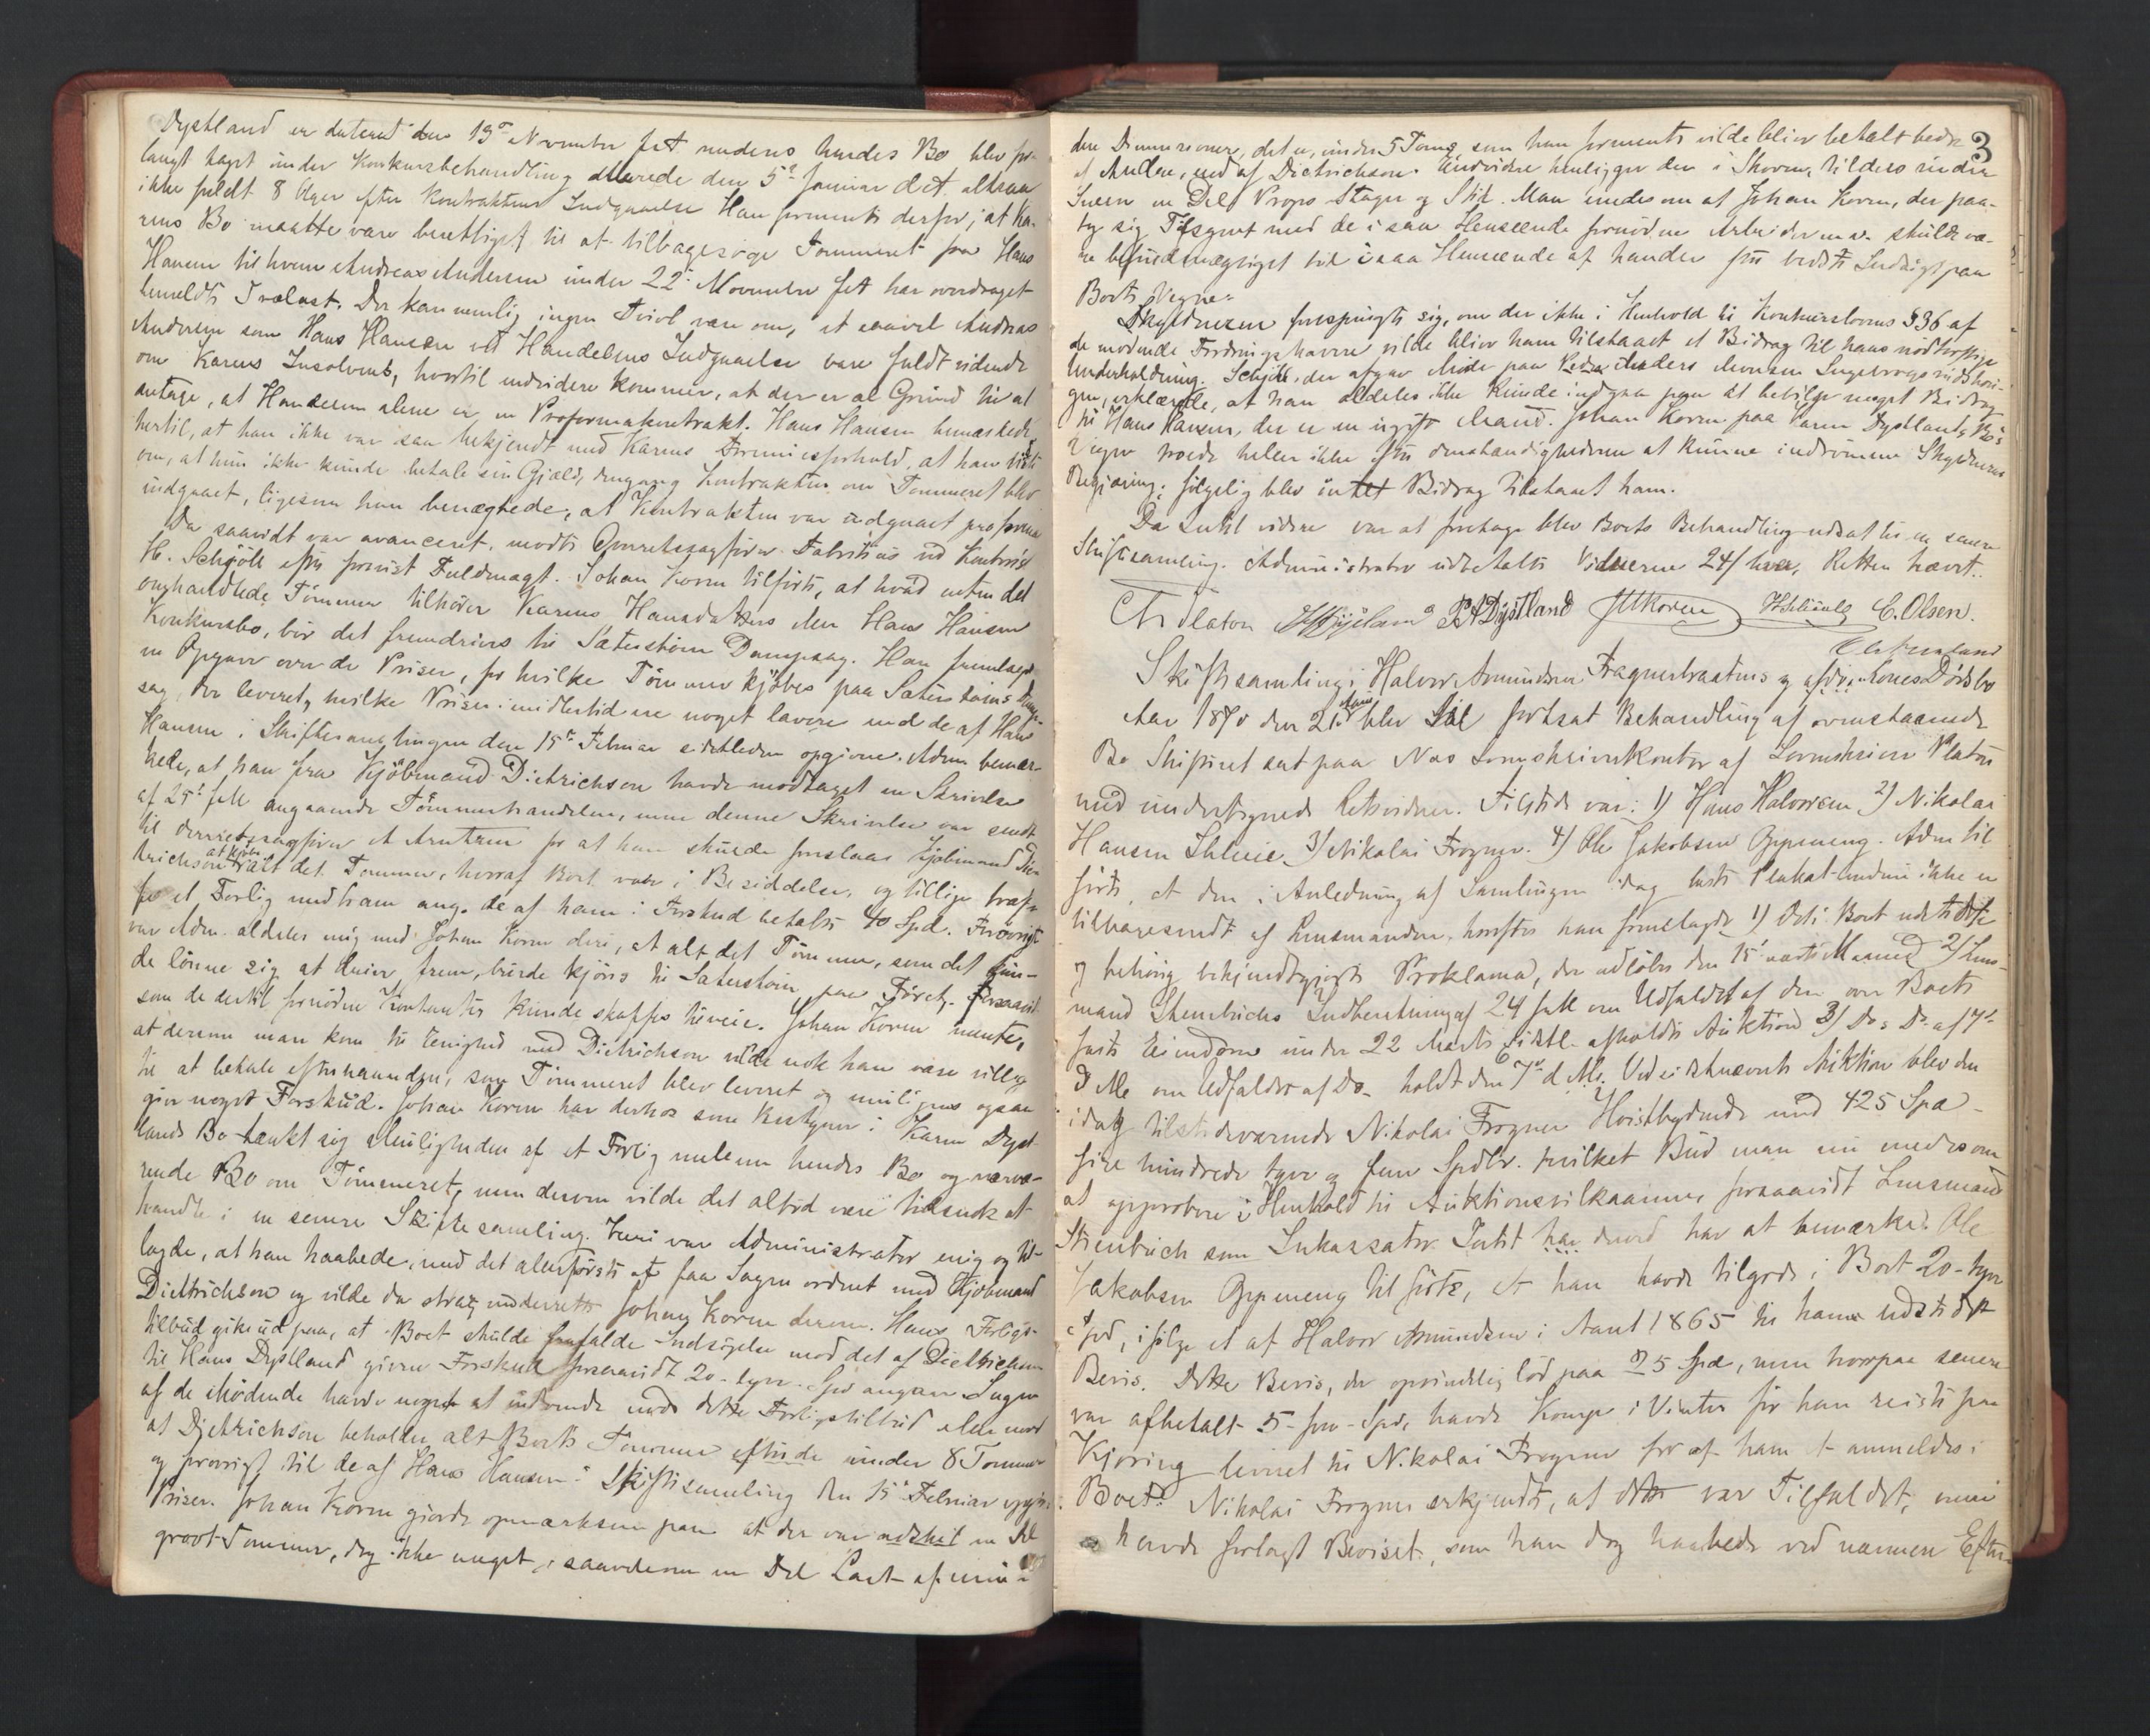 Dystland er dateret den 13de November f.A medens hendes Bo blev for-
langt taget under Konkursbehandling allerede den 5te Januar d.A. altsaa
ikke fuldt 8 Uger efter Kontraktens Indgaaelse. Han formente derfor, at Ka-
rens Bo maatte være berettiget til at tilbagesøge Tømmeret fra Hans
Hansen til hvem Andreas Andersen under 22de November f.A har overdraget
bemeldte Trælast. Der kan nemlig ingen Tvivl være om, at saavel Andreas
Andersen som Hans Hansen ved Handelens Indgaaelse vare fuldt vidende
om Karens Insolvents, hvortil endvidere kommer, at der er al Grund til at
antage, at Handelen alene er en Proformakontrakt. Hans Hansen bemærkede
hertil, at han ikke var saa bekjendt med Karens Formuesforhold, at han vidste
om, at hun ikke kunde betale sin Gjæld, dengang Kontrakten om Tømmeret blev
indgaaet, ligesom han benægtede, at Kontrakten var indgaaet proforma
Da saavidt var avanceret, mødte Overretssagfører Fabritius ved Kontorist
H. Schjöll efter forevist Fuldmagt. Johan Koren tilførte, at hvad enten det
omhandlede Tømmer tilhører Karens Hansdatters eller Hans Hansens
Konkursbo, bør det fremdrives til Sæterstøen Dampsag. Han fremlagde
en Opgave over de Priser, for hvilke Tømmer kjøbes paa Sæterstøens Damp-
sag, der leveret, hvilke Priser imidlertid ere noget lavere end de af Hans
Hansen i Skiftesamlingen den 15de Februar sidstleden opgivne. Adm bemær-
kede, at han fra Kjøbmand Dietrichson havde modtaget en Skrivelse
af 25de f.M. angaaende Tømmerhandelen, men denne Skrivelse var sendt
til Overretssagfører A Arntzen for at han skulde foreslaa Kjøbmand Die-
trichson at kjøbe alt det Tømmer, hvoraf Boet var i Besiddelse, og tillige træf-
fe et Forlig med ham ang. de af ham i Forskud betalte 40 Spd. Forøvrigt
var Adm. aldeles enig med Johan Koren deri, at alt det Tømmer, som det kun-
de lønne sig at drive frem, burde kjøres til Sæterstøen paa Føret, forsaavidt
som de dertil fornødne Kontanter kunde skaffes tilveie. Johan Koren mente,
at dersom man kom til Enighed med Dietrichson vilde nok han være villig
til at betale efterhaanden, som Tømmeret blev leveret og muligens ogsaa
give noget Forskud. Johan Koren har derhos som Bestyrer i Karen Dyst-
lands Bo tænkt sig Muligheden af et Forlig mellem hendes Bo og nærvæ-
rende Bo om Tømmeret, men derom vilde det altid være tidsnok at
handle i en senere Skiftesamling. Heri var Administrator enig og til-
lagde, at han haabede, med det allerførste at faa Sagen ordnet med Kjøbmand
Dietrichson og vilde da strax underrette Johan Koren derom. Hans Forligs-
tilbud gik ud paa, at Boet skulde frafalde Indsigelse mod det af Dietrichson
til Hans Dystland givne Forskud forsaavidt 20 - tyve - Spd angaar. Ingen
af de Mødende havde noget at indvende mod dette Forligstilbud eller mod
at Dietrichson beholder alt Boets Tømmer endende under 8 Tommer
og forøvrigt til de af Hans Hansen i Skiftesamling den 15de Februar opgivne
Priser. Johan Koren gjorde opmærksom paa at der var udskilt en Del
grovt Tømmer, dog ikke meget, saavelsom en Del Last af min-
3
dre Dimensioner, det er, under 5 Tomr, som han formente vilde bliver betalt bedre
af Andre, end af Dietrichson. Endvidere henligger der i Skoven, tildels under
Sneen en Del Props Stager og Skid. Man enedes om at Johan Koren, der paa-
tog sig Tilsynet med de i saa Henseende fornødne Arbeider m. v. skulde væ-
re befuldmægtiget til i saa Henseende at handle efter bedste Indsigt paa
Boets Vegne.
Skyldneren forespurgte sig, om der ikke i Henhold til Konkurslovens § 36 af
de mødende Fordringshavere vilde bliver ham tilstaaet et Bidrag til hans nødtørftige
Underholdning. Schjöll, der afgav Møde paa Peder Anders Monsen Ingeborgrudshau-
gen, erklærede, at han aldeles ikke kunde indgaa paa at bevilge noget Bidrag
til Hans Hansen, der er en ugift Mand. Johan Koren paa Karen Dystlands Bo's
Vegne troede heller ikke efter Omstændighederne at kunne indrømme Skyldnerens
Begjæring; følgelig blev intet Bidrag tilstaaet ham.
Da Intet videre var at foretage blev Boets Behandling udsat til en senere
Skiftesamling. Administrator udbetalte Vidnerne 24/ hver. Retten hævet.
Chr Platou P A Dystland JMKoren HSchjöll E. Olsen.
Skiftesamling i Halvor Amundsen Fragnerbraatens og afdøde Kones Dødsbo
Aar 1870 den 21de April blev Skl fortsat Behandling af ovenstaaende
Bo. Skifteret sat paa Næs Sorenskriverkontor af Sorenskriver Platou
med undertegnede Retsvidner. Tilstede var: 1) Hans Halvorsen 2) Nikolai
Hansen 3) Nikolai Frogner. 4) Ole Jakobsen Oppeneng. Adm til-
førte, at den i Anledning af Samlingen idag læste Plakat endnu ikke er
tilbagesendt af Lensmanden, hvorefter han fremlagde 1) Det i Boet udstedte
og behørig bekjendtgjorte Proklama, der udløber den 15de næste Maaned 2) Lens-
mand Steenbuchs Indberetning af 24 f.M. om Udfaldet af den over Boets
faste Eiendom under 22 Marts sidstl. afholdte Auktion 3) Do. Do af 7de
d Ms om Udfaldet af Do. holdt den 6te d. Ms. Ved sidstnævnte Auktion blev den
idag tilstedeværende Nikolai Frogner Høistbydende med 425 Spd -
fire hundrede tyve og fem Spdlr. hvilket Bud man enedes om
at approbere i Henhold til Auktionsvilkaarene forsaavidt Lensmand
Steenbuch som Inkassator Intet har derved har at bemærke. Ole
Jakobsen Oppeneng tilførte, at han havde tilgode i Boet 20 - tyve
Spd, ifølge et af Halvor Amundsen i Aaret 1865 til ham udstedt
Bevis. Dette Bevis, der oprindelig lød paa 25 Spd, men hvorpaa senere
var afbetalt 5 - fem - Spd, havde Komp i Vinter før han reiste paa
Kjøring leveret til Nikolai Frogner for af ham at anmeldes i
Boet. Nikolai Frogner erkjendte, at dette var Tilfældet, men
havde forlagt Beviset, som han dog haabede ved nærmere Efter-